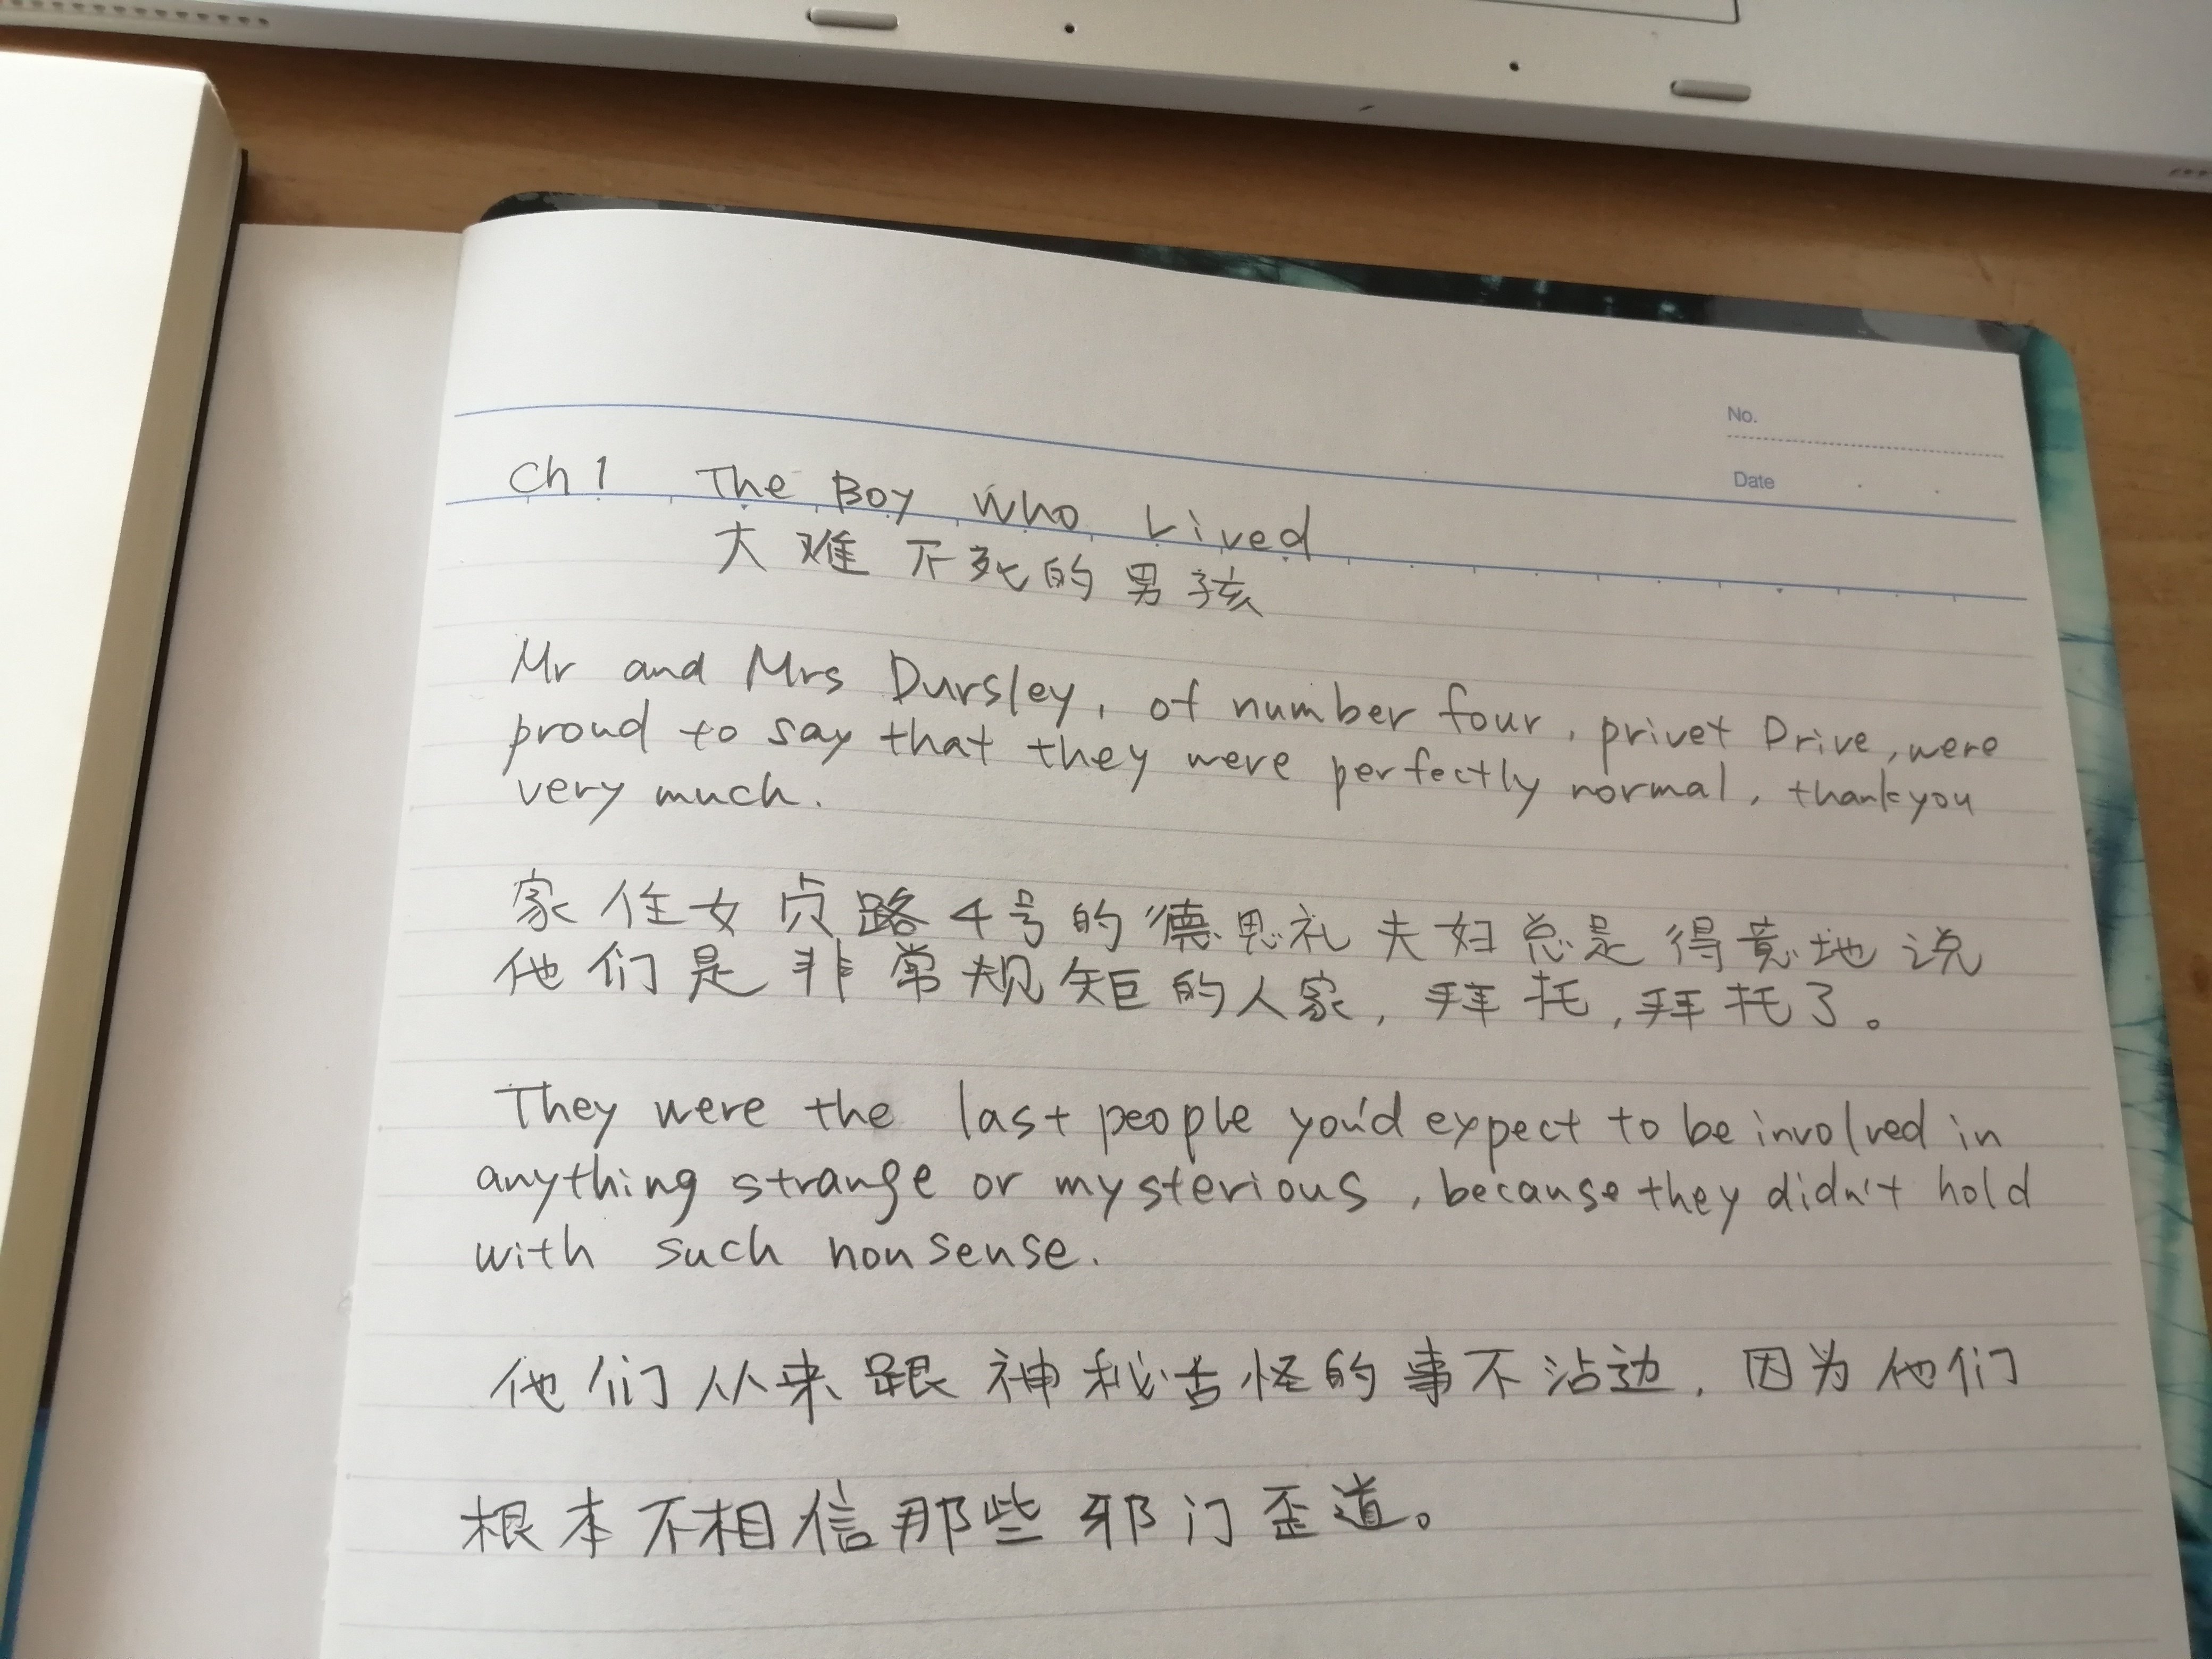 No.
Date
Ch 1 The Boy Who Lived
大难不死的男孩
Mr and Mrs Dursley, of number four, privet Drive, were
proud to say that they were perfectly normal, thank you
very much.
家住女贞路4号的德思礼夫妇总是得意地说
他们是非常规矩的人家，拜托，拜托了。
They were the last people you'd expect to be involved in
anything strange or mysterious, because they didn't hold
with such nonsense.
他们从来跟神秘古怪的事不沾边，因为他们
根本不相信那些邪门歪道。